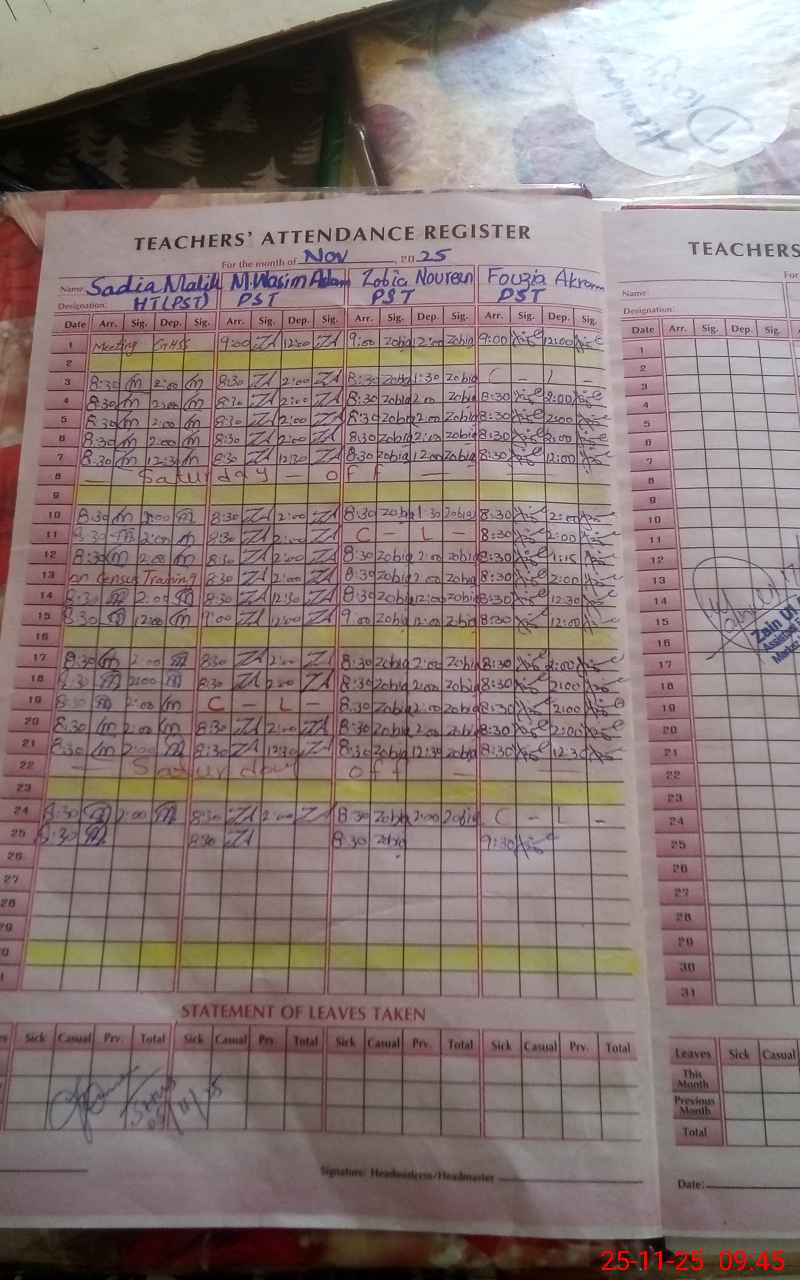 Attendance
TEACHERS' ATTENDANCE REGISTER
For the month of Nov 2025
Name: Sadia Malik M.Wasim Adam Zobia Noureen Fouzia Akram
Designation: HT(PST) PST PST PST
Date Arr. Sig. Dep. Sig. Arr. Sig. Dep. Sig. Arr. Sig. Dep. Sig. Arr. Sig. Dep. Sig.
1 Meeting 9:00 ZA 12:00 ZA 9:00 Zobia 12:00 Zobia 9:00 12:00
2
3 8:30 m 2:00 m 8:30 ZA 2:00 ZA 8:30 Zobia 1:30 Zobia C - L -
4 8:30 m 2:00 m 8:30 ZA 2:00 ZA 8:30 Zobia 2:00 Zobia 8:30 2:00
5 8:30 m 2:00 m 8:30 ZA 2:00 ZA 8:30 Zobia 2:00 Zobia 8:30 2:00
6 8:30 m 2:00 m 8:30 ZA 2:00 ZA 8:30 Zobia 2:00 Zobia 8:30 2:00
7 8:30 m 12:30 m 8:30 ZA 12:30 ZA 8:30 Zobia 12:00 Zobia 8:30 12:00
8 — Saturday — off —
9
10 8:30 m 2:00 m 8:30 ZA 2:00 ZA 8:30 Zobia 1:30 Zobia 8:30 2:00
11 8:30 m 2:00 m 8:30 ZA 2:00 ZA C - L - 8:30 2:00
12 8:30 m 2:00 m 8:30 ZA 2:00 ZA 8:30 Zobia 2:00 Zobia 8:30 1:15
13 on Census Training 8:30 ZA 2:00 ZA 8:30 Zobia 2:00 Zobia 8:30 2:00
14 8:30 m 2:00 m 8:30 ZA 12:30 ZA 8:30 Zobia 12:00 Zobia 8:30 12:30
15 8:30 m 12:00 m 9:00 ZA 12:00 ZA 9:00 Zobia 12:00 Zobia 8:30 12:00
16
17 8:30 m 2:00 m 8:30 ZA 2:00 ZA 8:30 Zobia 2:00 Zobia 8:30 2:00
18 8:30 m 2:00 m 8:30 ZA 2:00 ZA 8:30 Zobia 2:00 Zobia 8:30 2:00
19 8:30 m 2:00 m C - L - 8:30 Zobia 2:00 Zobia 8:30 2:00
20 8:30 m 2:00 m 8:30 ZA 2:00 ZA 8:30 Zobia 2:00 Zobia 8:30 2:00
21 8:30 m 2:00 m 8:30 ZA 12:30 ZA 8:30 Zobia 12:30 Zobia 8:30 12:30
22 — Saturday off — —
23
24 8:30 m 2:00 m 8:30 ZA 2:00 ZA 8:30 Zobia 2:00 Zobia C - L -
25 8:30 m 8:30 ZA 8:30 Zobia 9:30
26
27
28
29
30
STATEMENT OF LEAVES TAKEN
Sick Casual Prv. Total Sick Casual Prv. Total Sick Casual Prv. Total Sick Casual Prv. Total
Signature: Headmistress/Headmaster
TEACHERS
For
Name:
Designation:
Date Arr. Sig. Dep. Sig.
1
2
3
4
5
6
7
8
9
10
11
12
13
14
15
16
17
18
19
20
21
22
23
24
25
26
27
28
29
30
31
Zain Ul
Leaves Sick Casual
This Month
Previous Month
Total
Date:
25-11-25 09:45